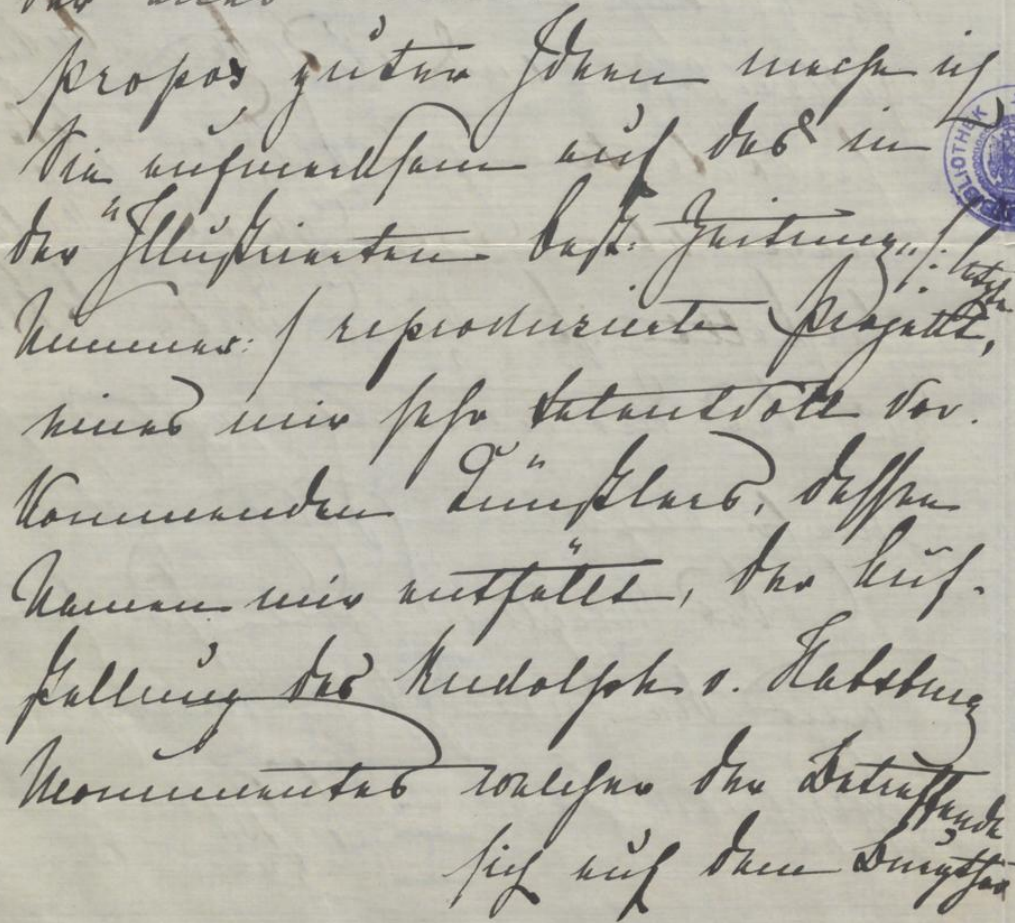 propos guter Ideen mache ich
Sie aufmerksam auf das in
der "Illustrierten Oest: Zeitung" /: letzte
Nummer: / reproduzierte Projekt,
eines mir sehr talentvoll vor-
kommenden Künstlers, dessen
Namen mir entfällt, der Auf-
stellung des Rudolph v. Habsburg
Monumentes welches der Betreffende
sich auf dem Burgthor
BIBLIOTHEK